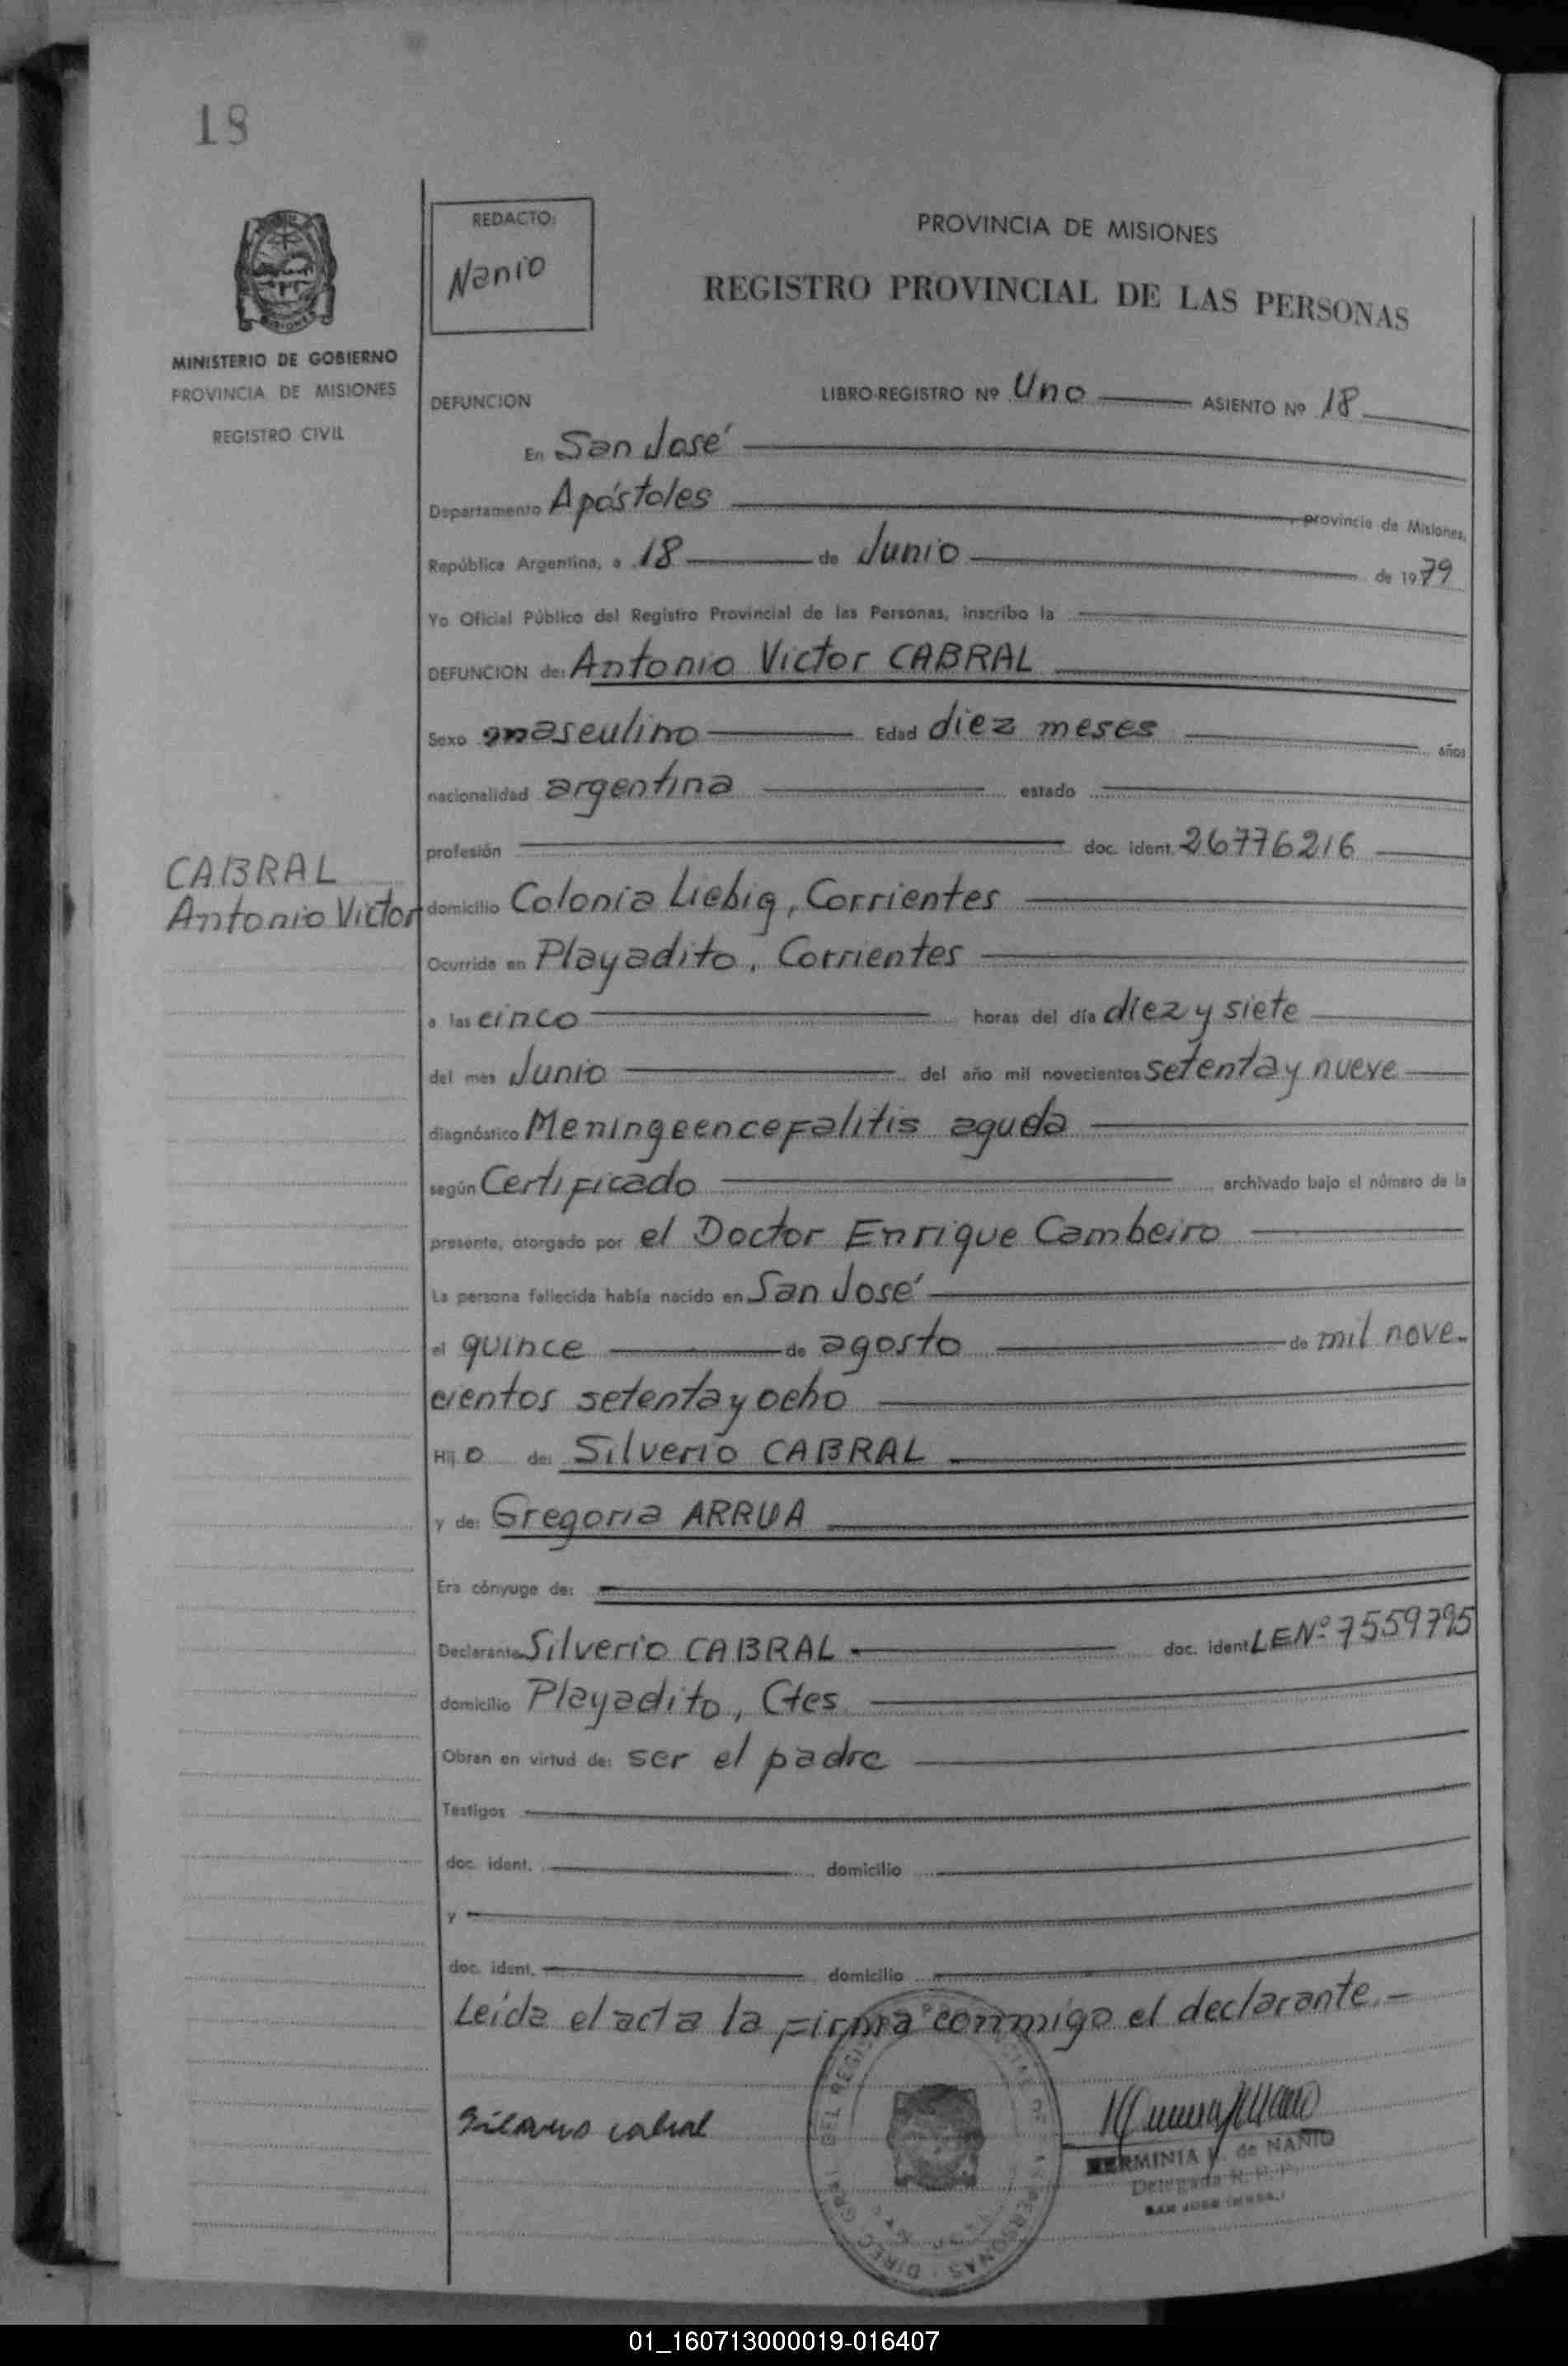 18
REDACTO:
Nanio
PROVINCIA DE MISIONES
REGISTRO PROVINCIAL DE LAS PERSONAS
MINISTERIO DE GOBIERNO
PROVINCIA DE MISIONES
REGISTRO CIVIL
DEFUNCION LIBRO-REGISTRO Nº Uno ASIENTO Nº 18
En San José
Departamento Apóstoles provincia de Misiones,
República Argentina, a 18 de Junio de 1979
Yo Oficial Público del Registro Provincial de las Personas, inscribo la
DEFUNCION de: Antonio Victor CABRAL
Sexo masculino Edad diez meses años
nacionalidad argentina estado
profesión doc. ident. 26776216
CABRAL
Antonio Victor
domicilio Colonia Liebig, Corrientes
Ocurrida en Playadito, Corrientes
a las cinco horas del día diez y siete
del mes Junio del año mil novecientos setenta y nueve
diagnóstico Meningeencefalitis aguda
según Certificado archivado bajo el número de la
presente, otorgado por el Doctor Enrique Cambeiro
La persona fallecida había nacido en San José
el quince de agosto de mil nove-
cientos setenta y ocho
Hijo de: Silverio CABRAL
y de: Gregoria ARRUA
Era cónyuge de:
Declarante Silverio CABRAL doc. ident LE Nº 7559795
domicilio Playadito, Ctes
Obran en virtud de: ser el padre
Testigos
doc. ident. domicilio
y
doc. ident. domicilio
Leída el acta la firma conmigo el declarante.-
Silverio cabral
HERMINIA de NANIO
Delegada R. P. P.
SAN JOSE
01_160713000019-016407